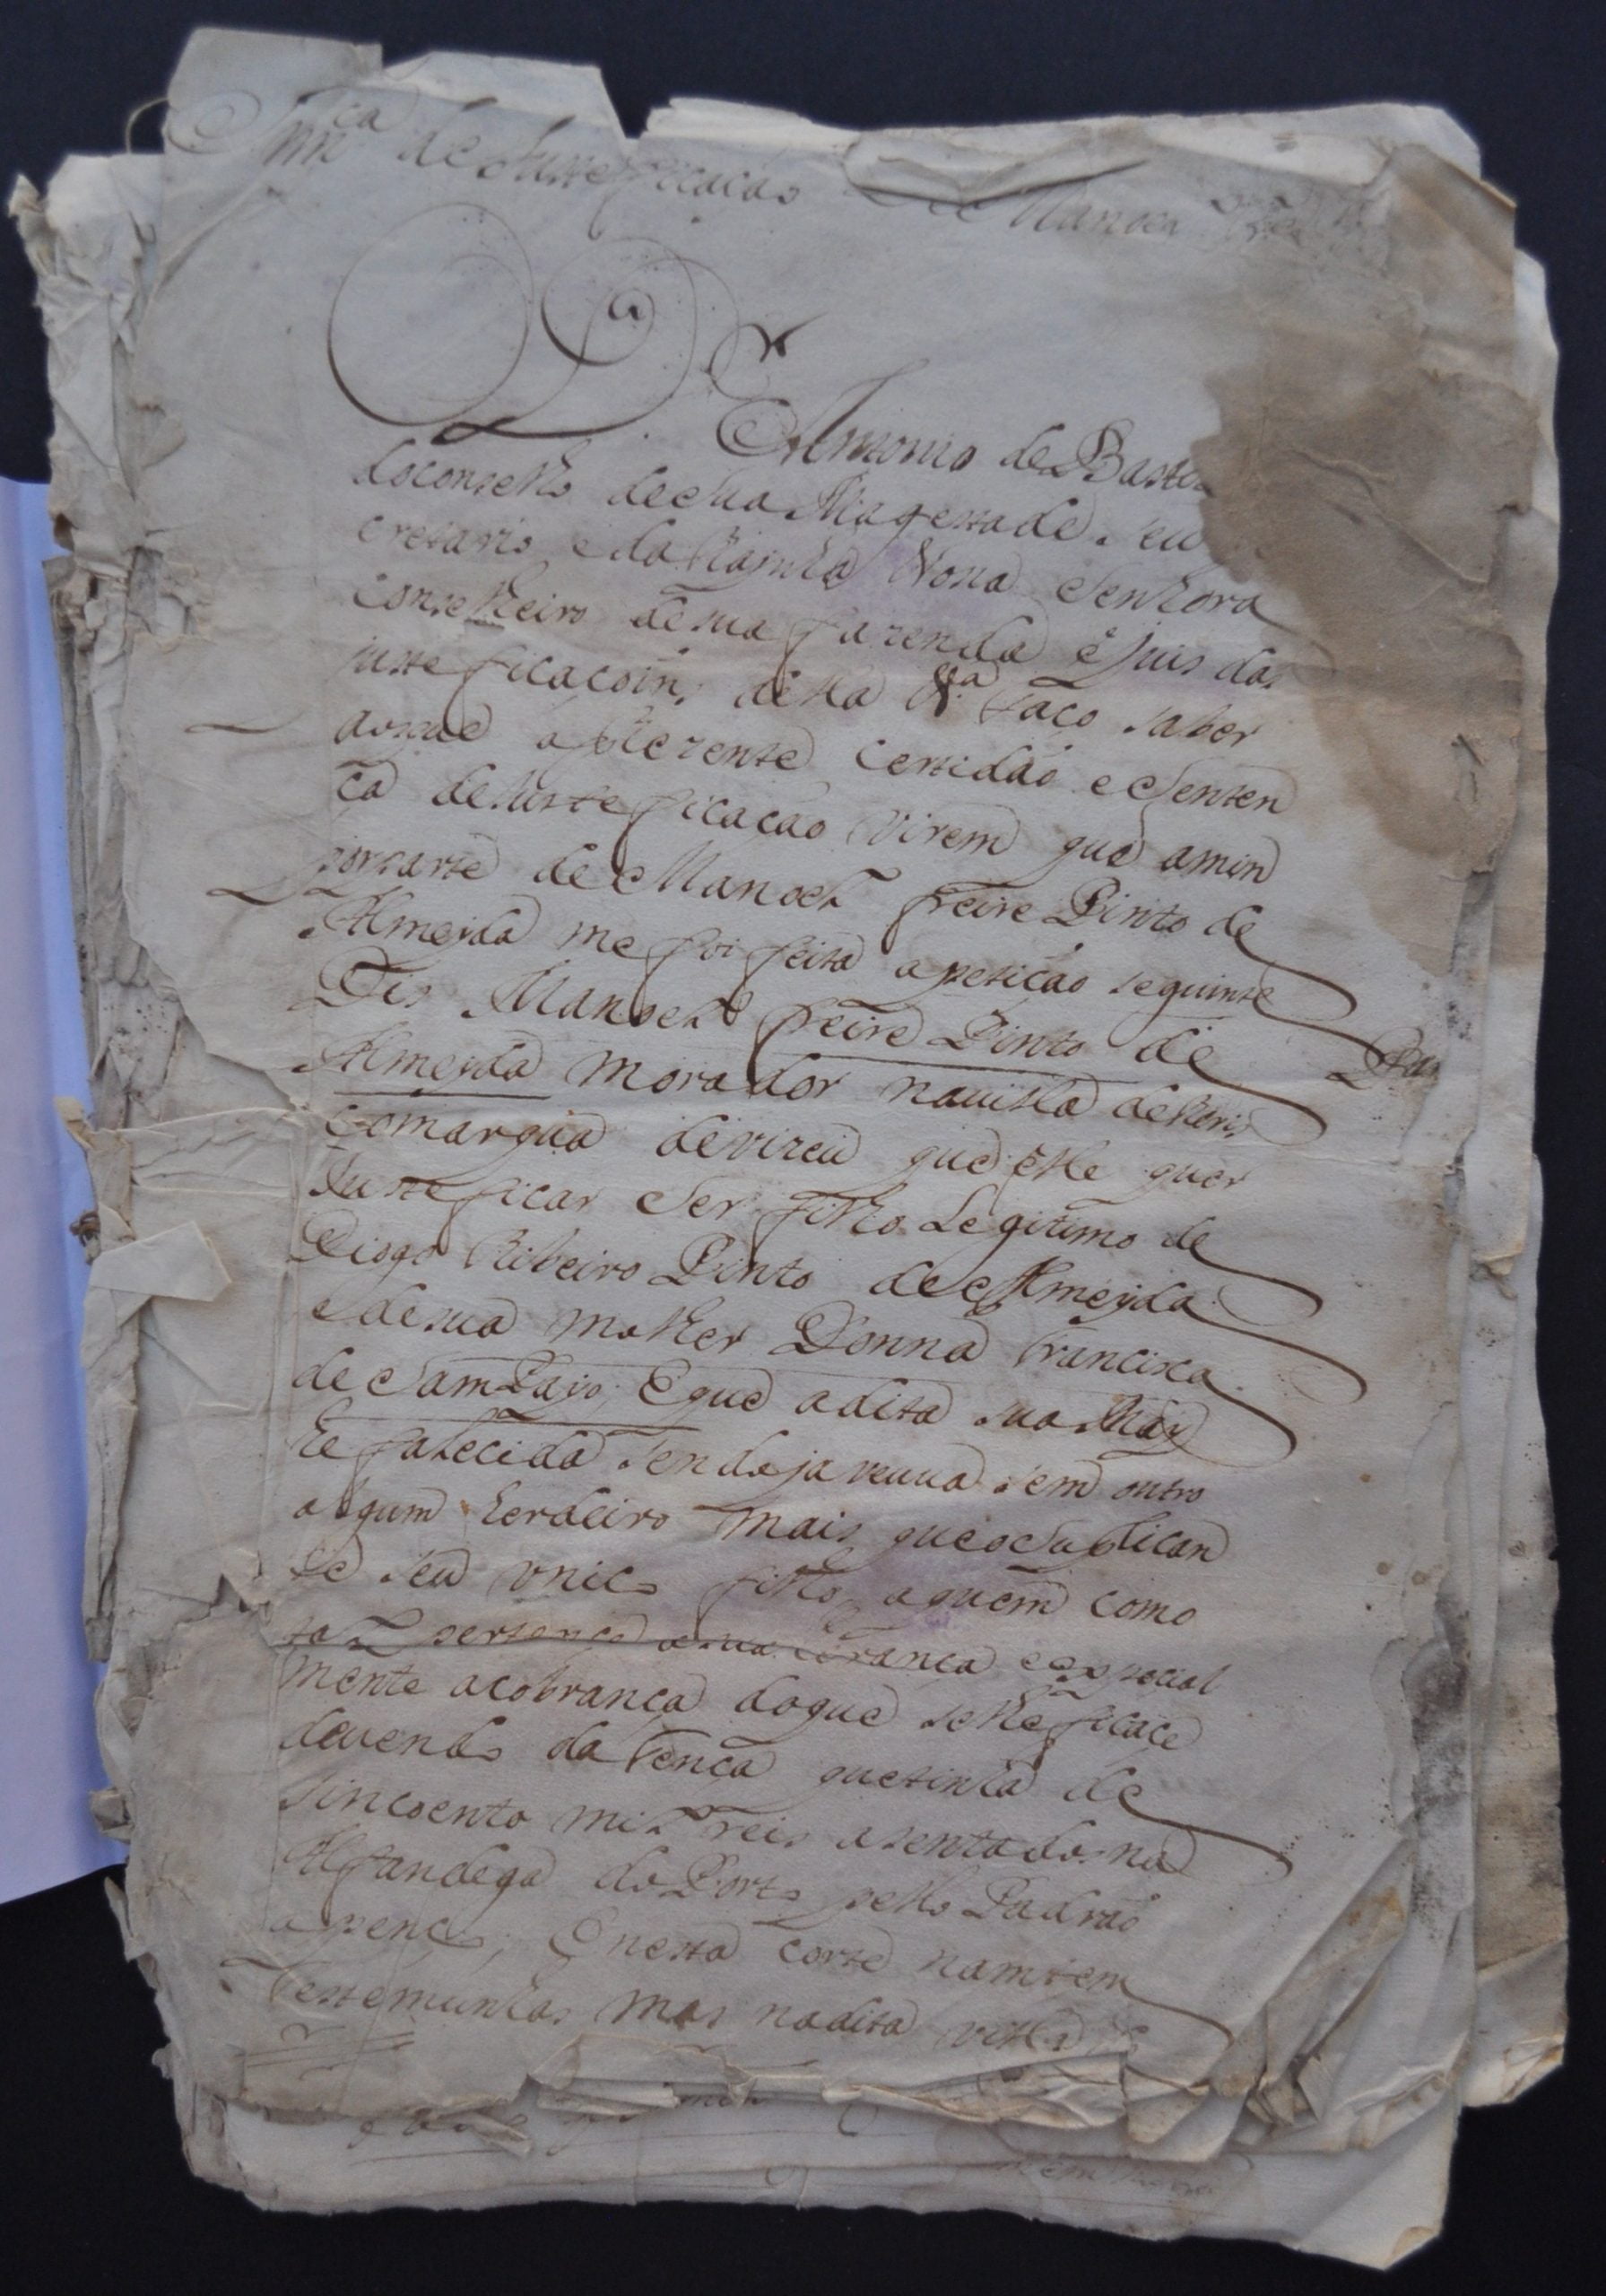 Snn.ca de Justeficacáo de Manoel Freire
O D.or Antonio de Basto
do conselho de Sua Magestade seu
cretario e da Rajnha Nosa Senhora
conselheiro de sua fazenda e Juis das
justeficacoiñs della &.a faço saber
aos que a prezente certidáo e Senten
ça de Justeficaçáo virem que a mim
por parte de Manoel freire Pinto de
Almeyda me foi feita a petiçáo seguinte
Dis Manoel freire Pinto de
Almeyda morador na villa de
comarqua de vizeu que elle quer
Justeficar Ser filho Legitimo de
Diogo Ribeiro Pinto de Almeyda
e de sua molher Donna Francisca
de SamPayo, E que a dita sua May
he falecida sendo ja veuua sem outro
algum herdeiro mais que o Suplican
te seu vnico filho a quem como
tal pertence a sua erança e especial
mente a cobrança do que se lhe ficace
deuendo da tença que tinha de
sincoenta mil reis asentados na
Alfandega do Porto pello Padráo
apenço, E nesta corte nam tem
testemunhas mas na dita villa